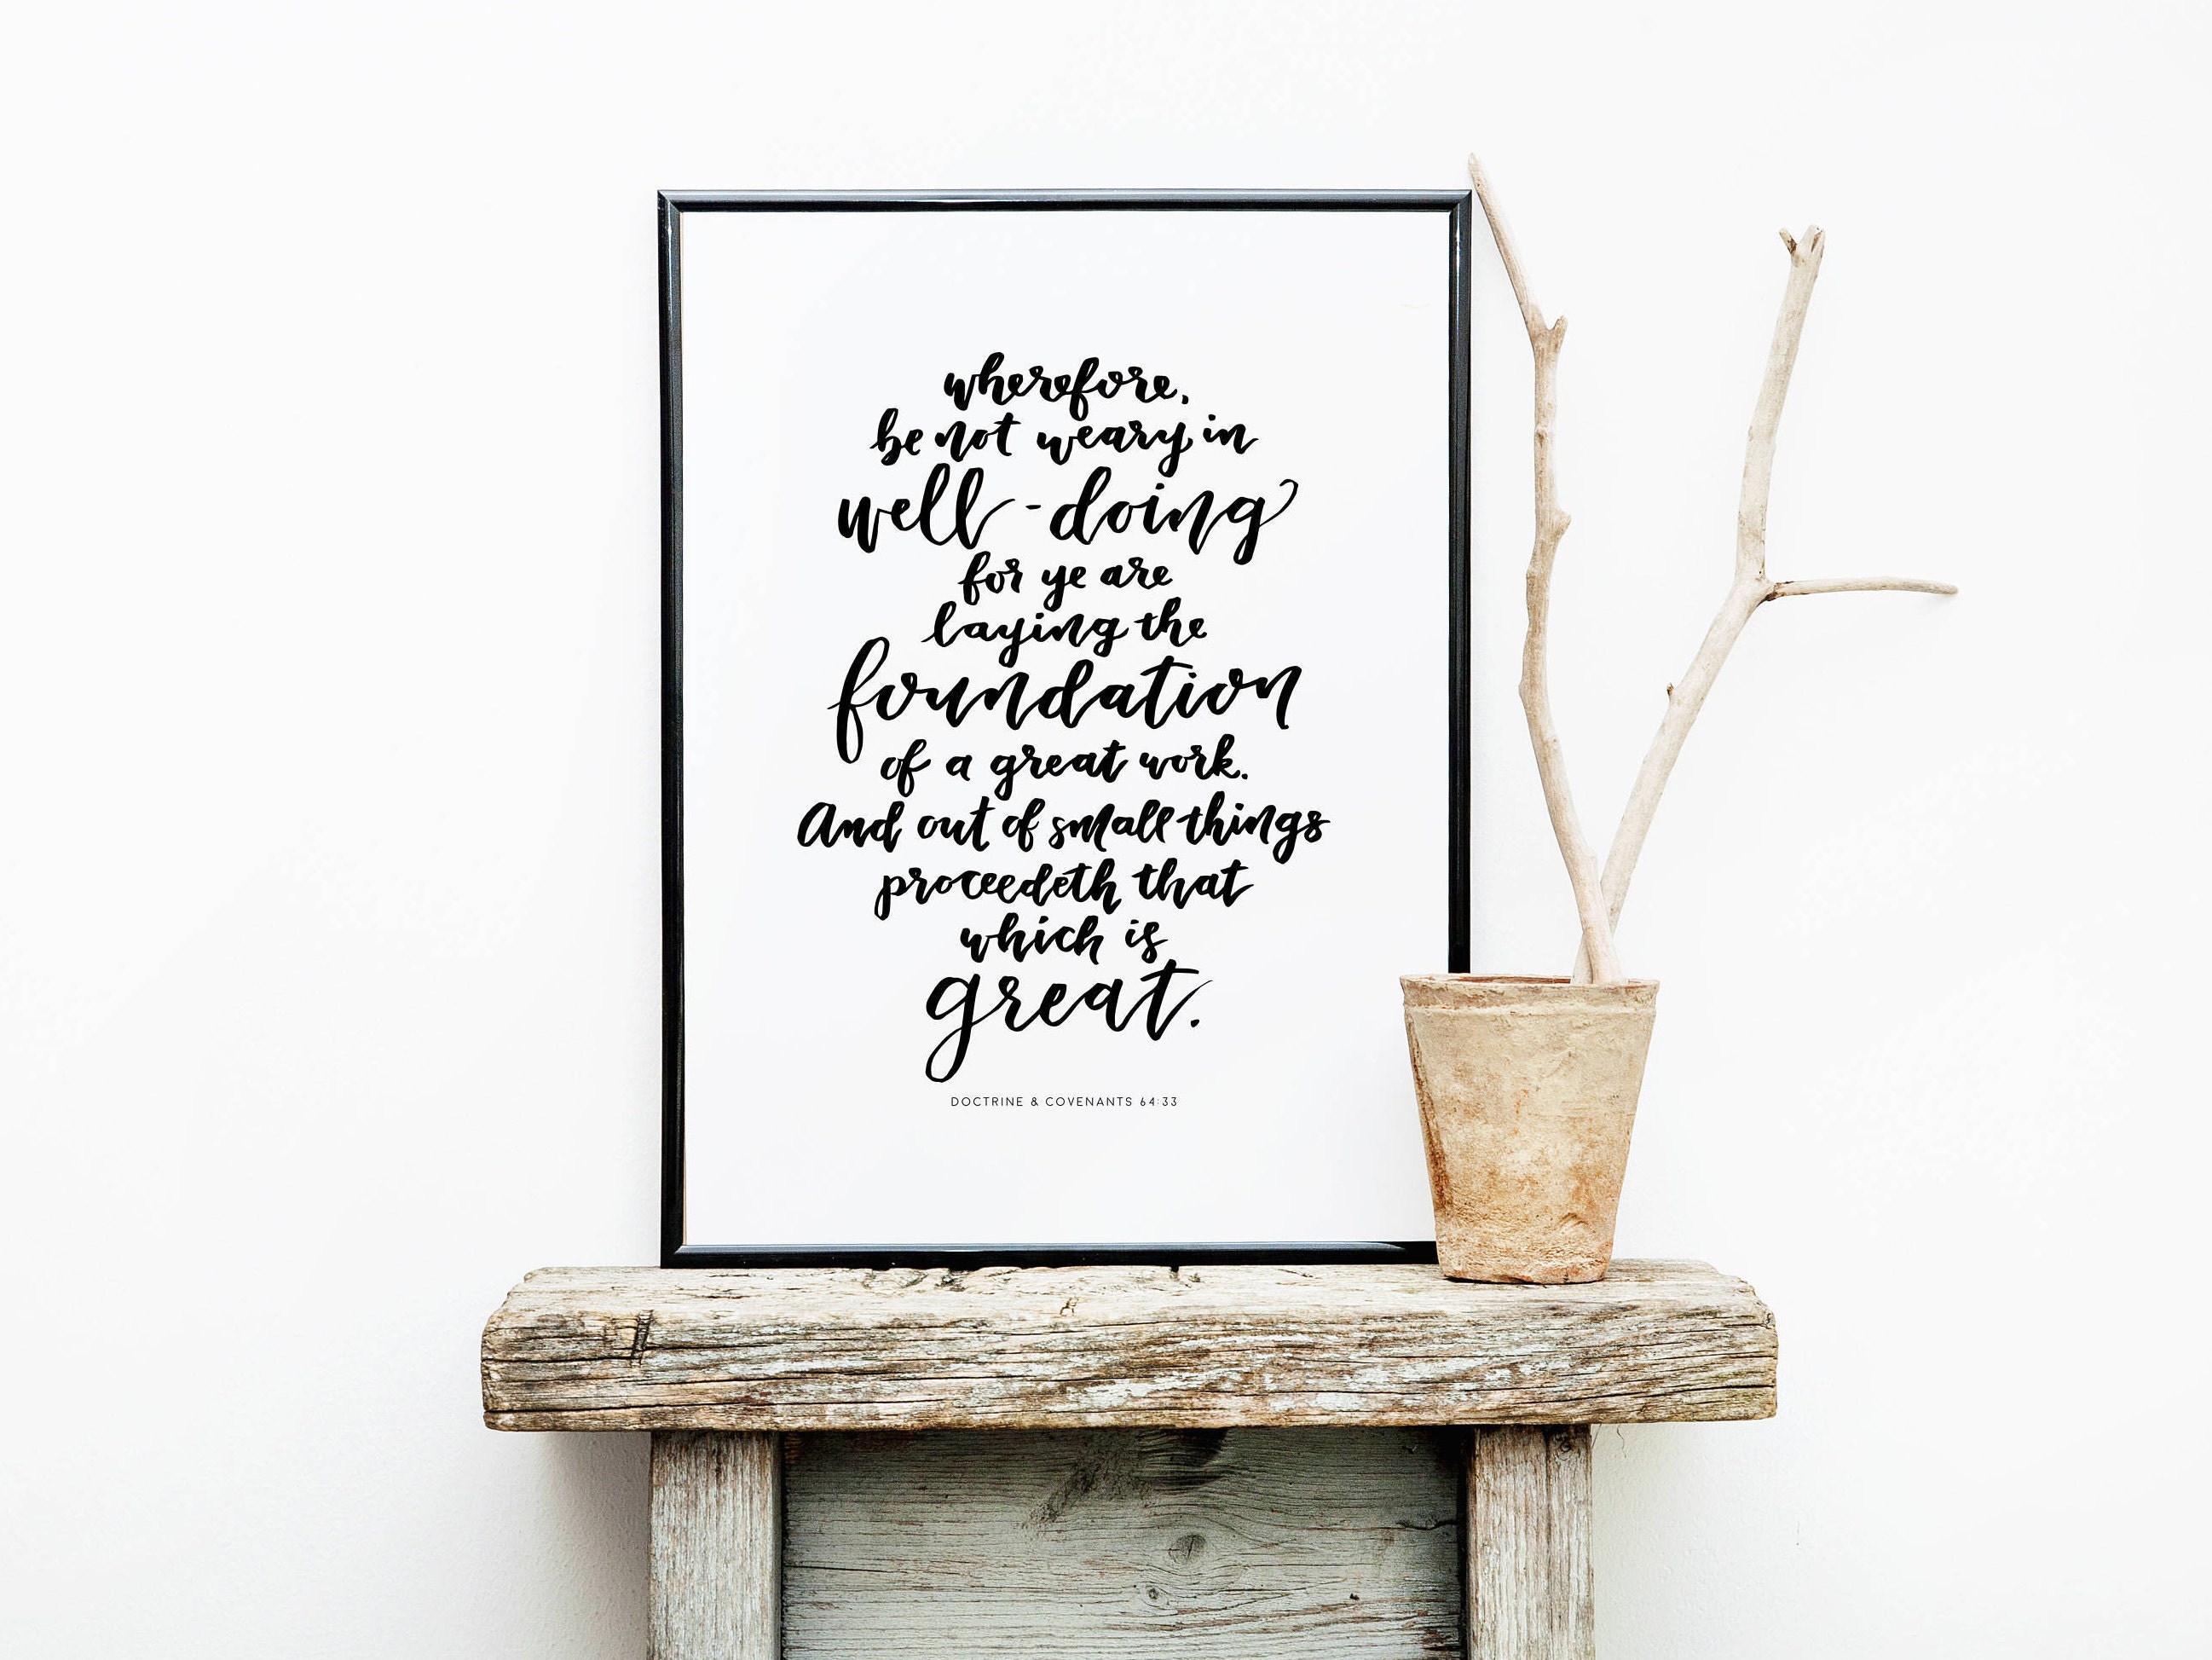 wherefore,
be not weary in
well-doing
for ye are
laying the
foundation
of a great work.
And out of small things
proceedeth that
which is
great.
DOCTRINE & COVENANTS 64:33